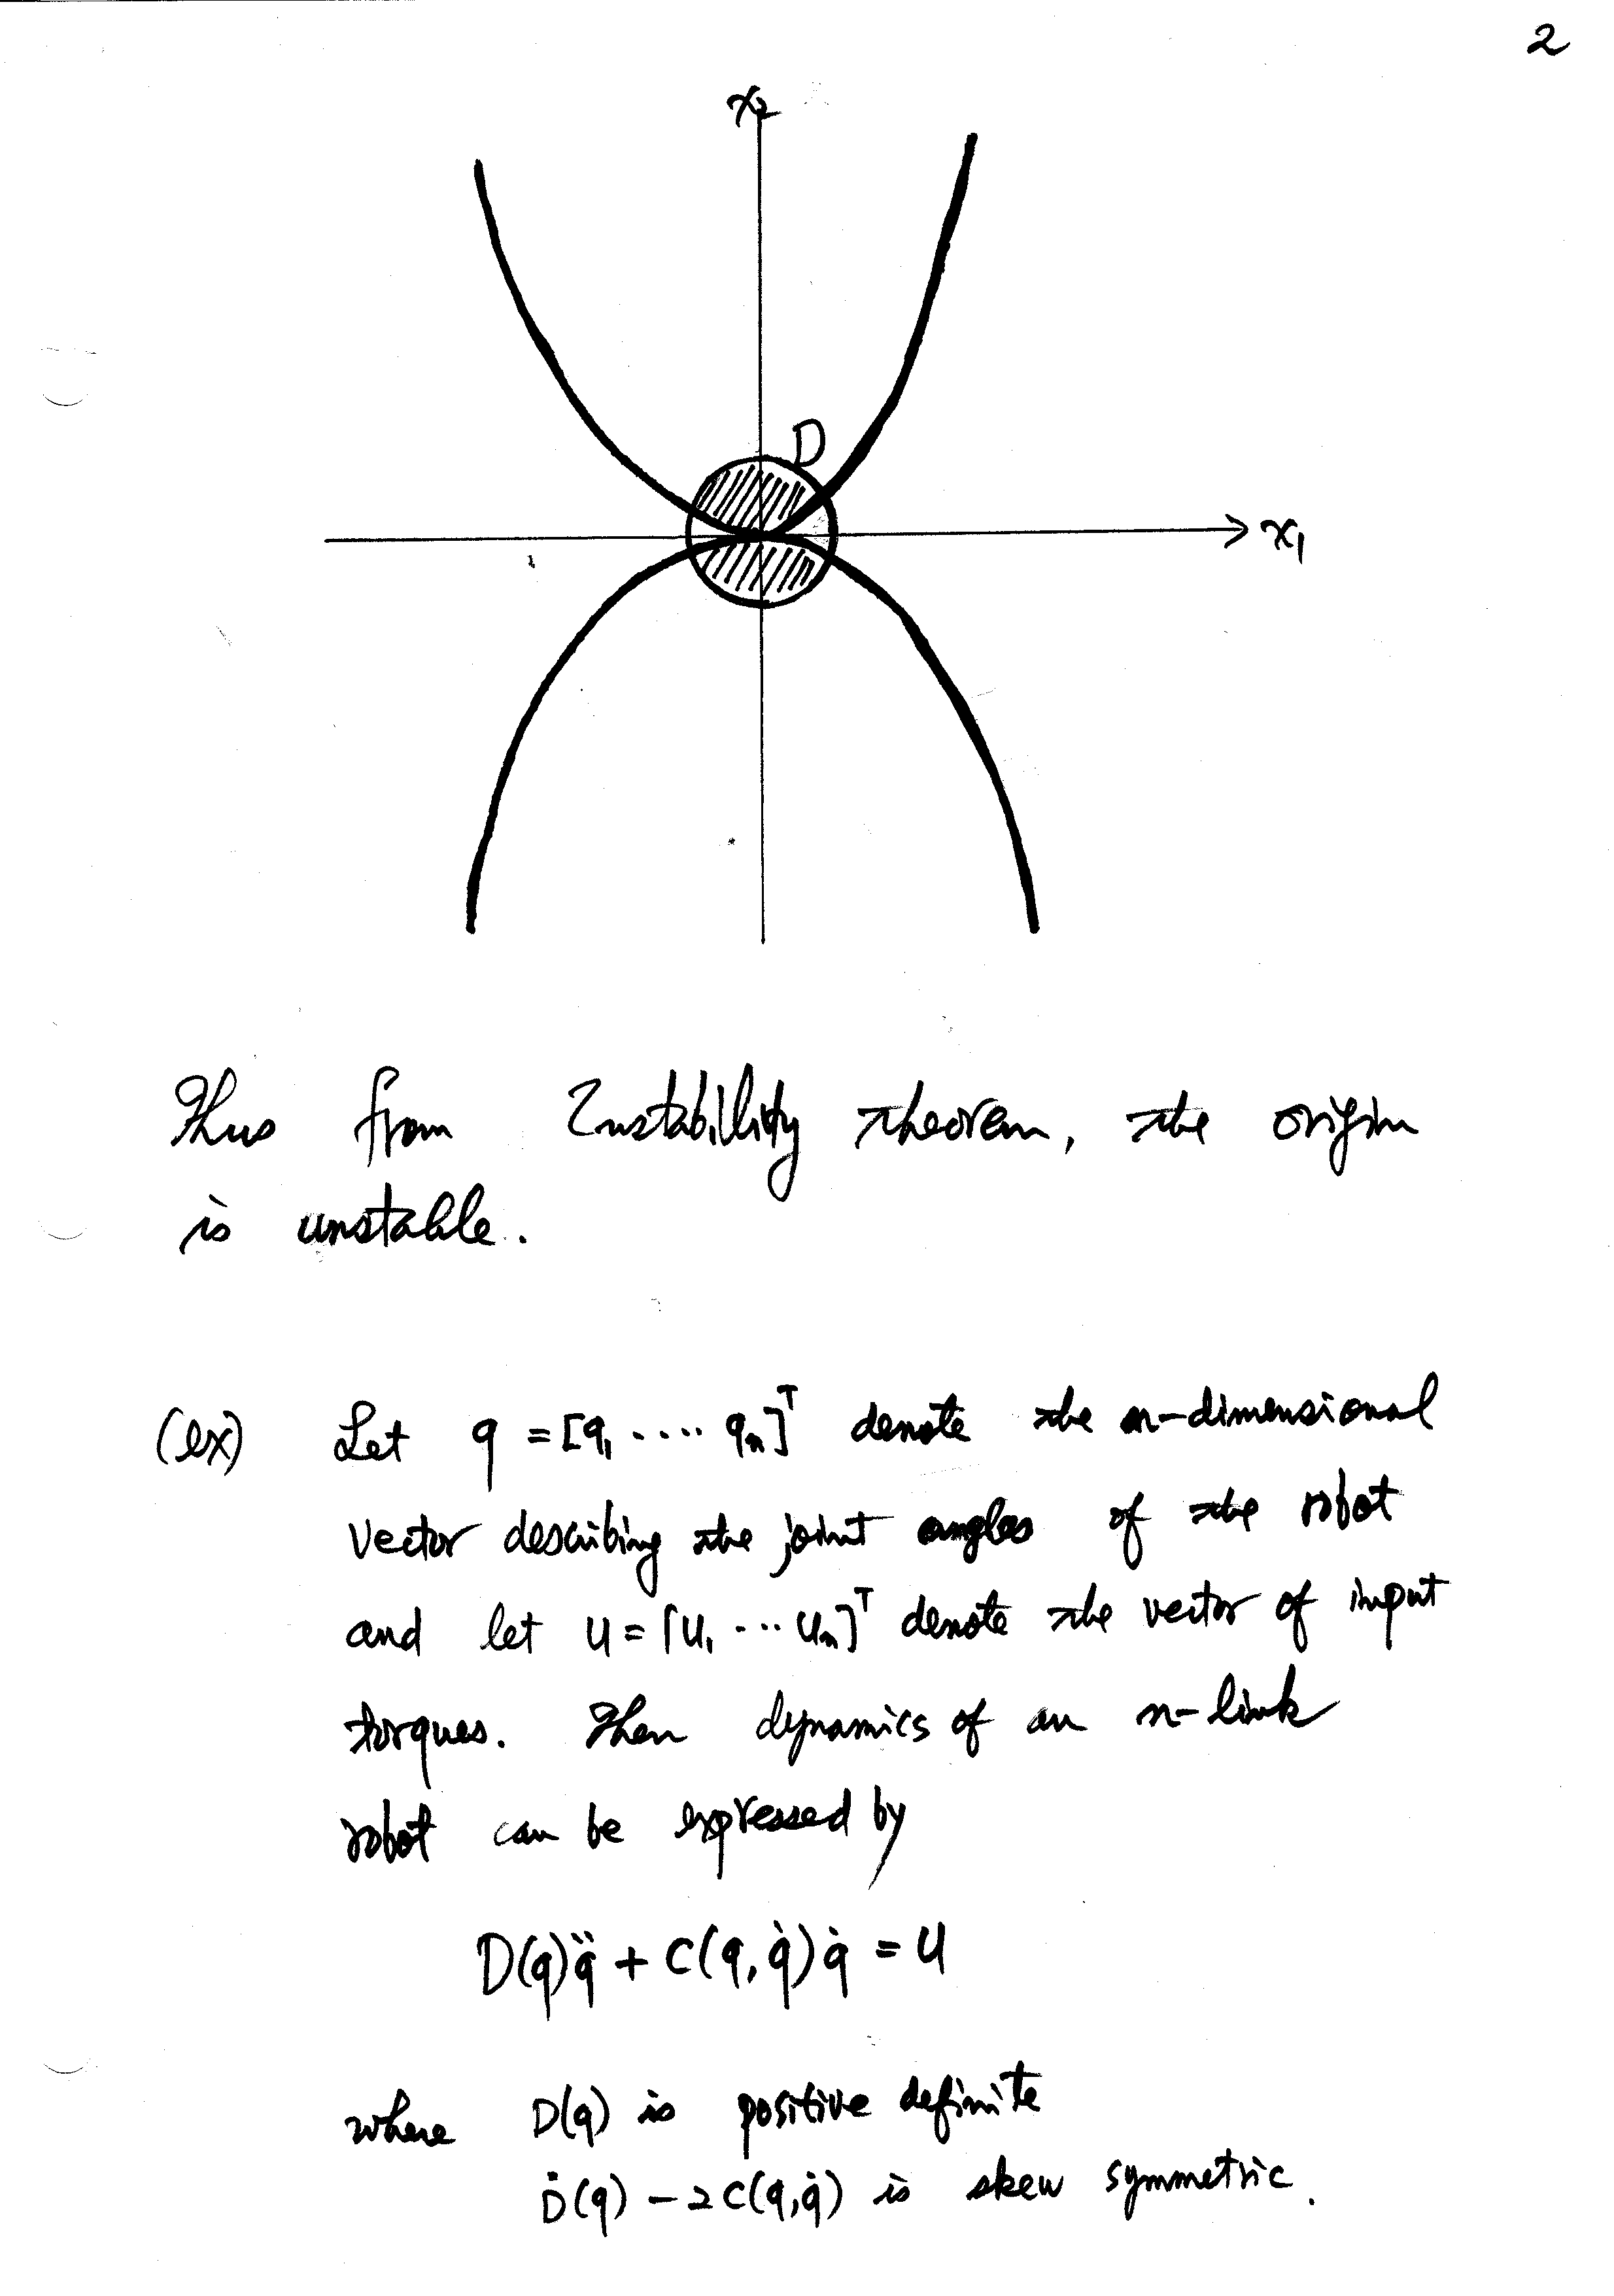 2
x₂
D
x₁
Thus from Instability theorem, the origin
is unstable.
(ex) Let q = [q₁ ···· qₙ]ᵀ denote the n-dimensional
vector describing the joint angles of the robot
and let u = [u₁ ··· uₙ]ᵀ denote the vector of input
torques. Then dynamics of an n-link
robot can be expressed by
D(q)q̈ + C(q, q̇)q̇ = u
where D(q) is positive definite
Ḋ(q) - 2C(q, q̇) is skew symmetric.